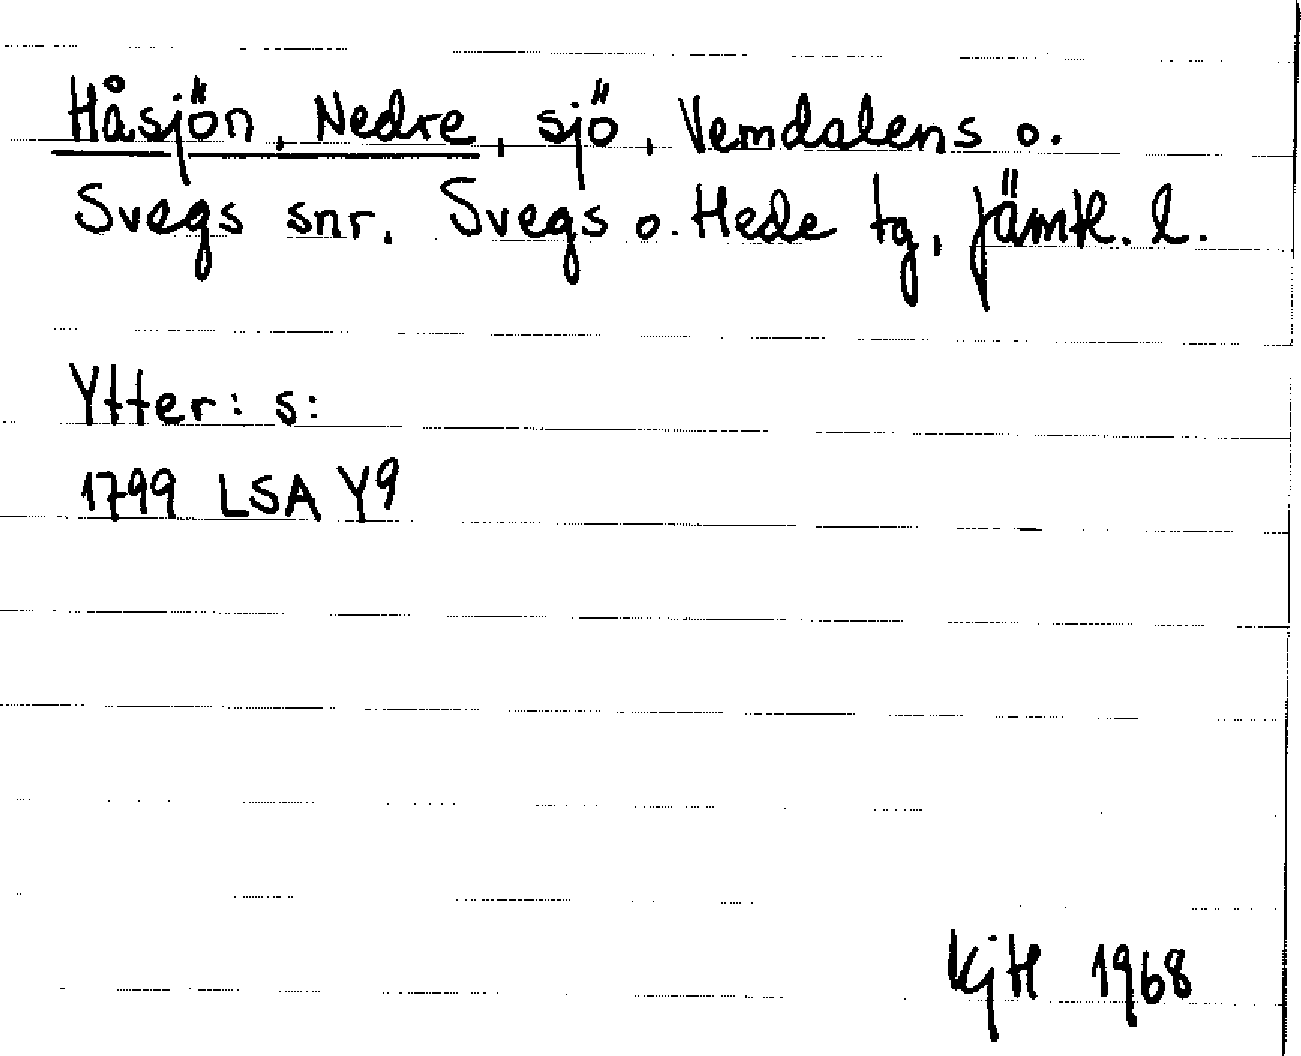 Håsjön, Nedre, sjö, Vemdalens o.
Svegs snr. Svegs o. Hede tg, Jämtl. l.
Ytter: s:
1799 LSA Y9
KjH 1968